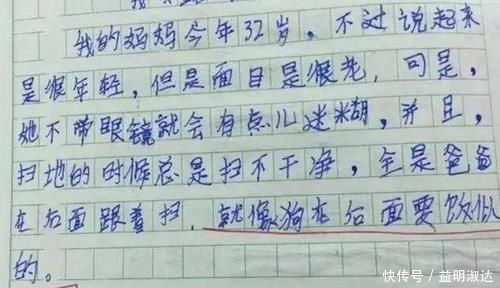 我的妈妈今年32岁，不过说起来
是很年轻，但是面目是很老，可是，
她不带眼镜就会有点儿迷糊，并且，
扫地的时候总是扫不干净，全是爸爸
在后面跟着扫，就像狗在后面要饭似
的。
快传号 / 益明淑达